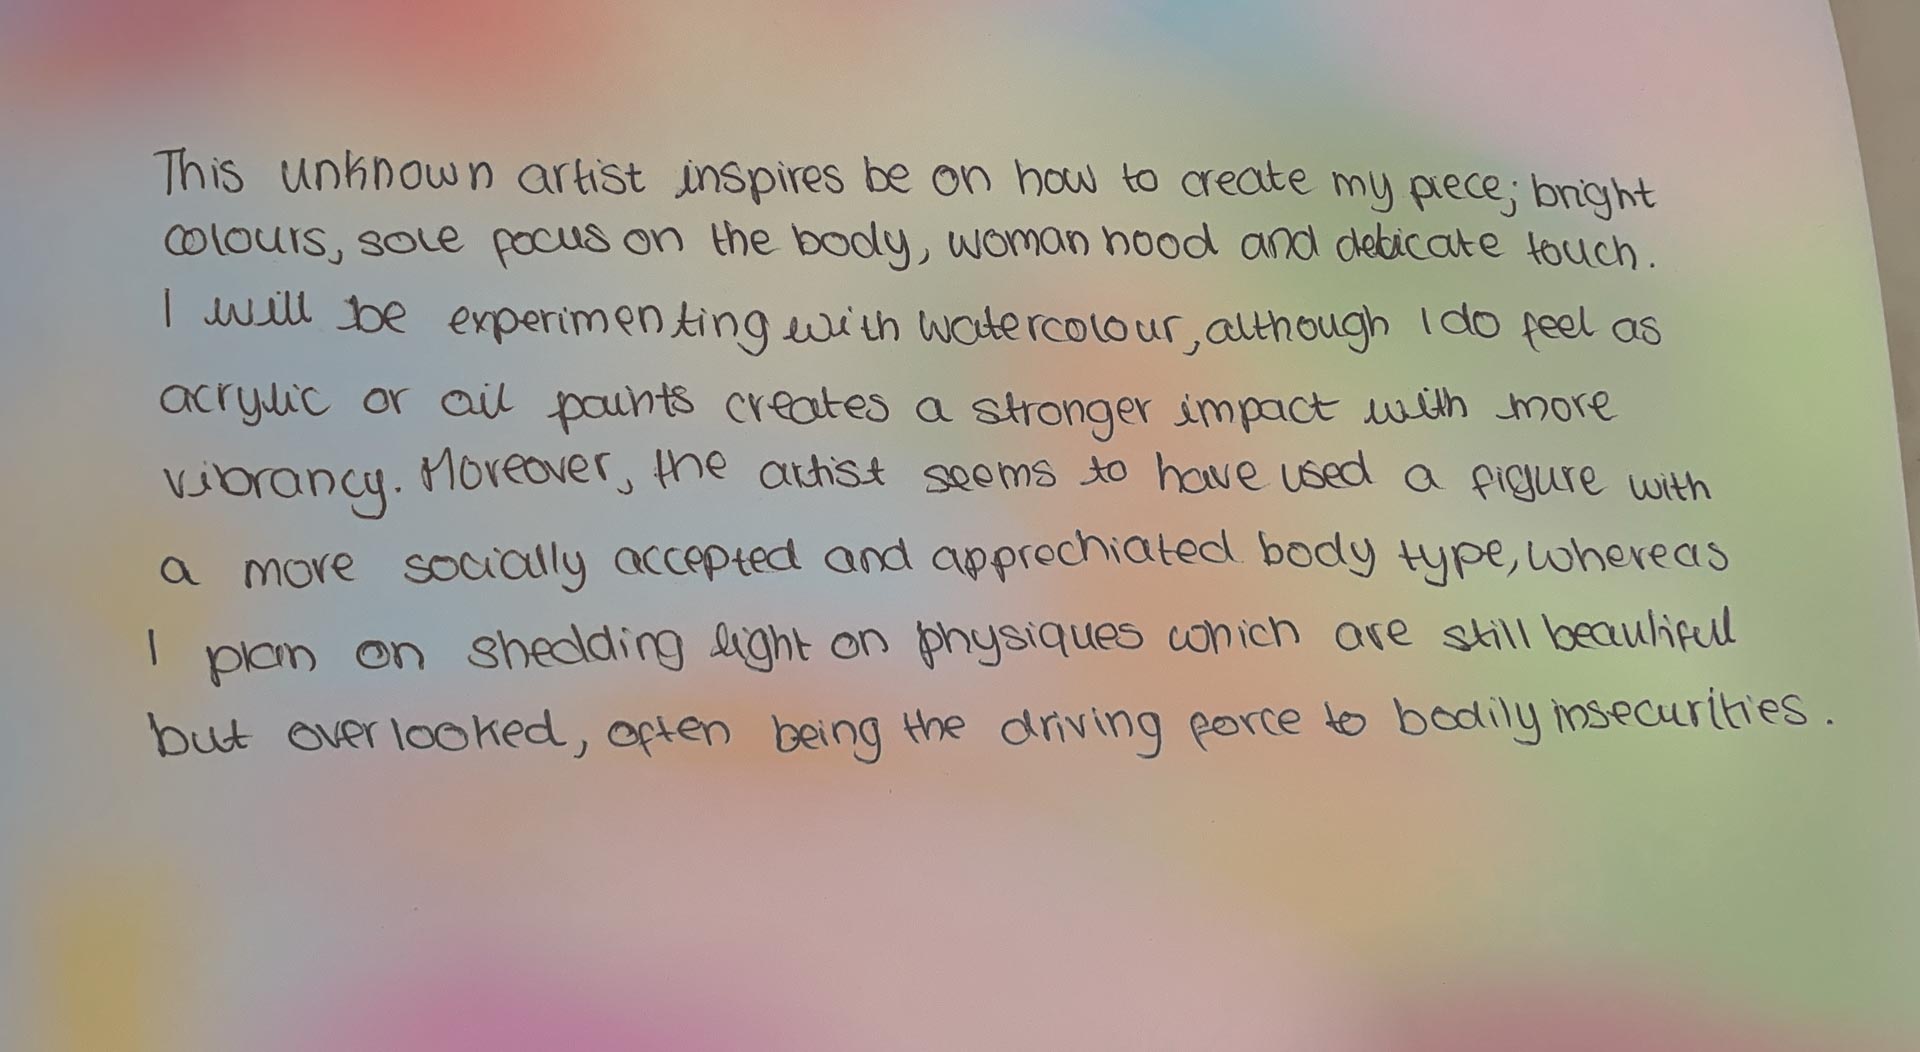 This unknown artist inspires be on how to create my piece; bright
colours, sole focus on the body, womanhood and debicate touch.
I will be experimenting with watercolour, although I do feel as
acrylic or oil paints creates a stronger impact with more
vibrancy. Moreover, the artist seems to have used a figure with
a more socially accepted and approchiated body type, whereas
I plan on shedding light on physiques which are still beautiful
but overlooked, often being the driving force to bodily insecurities.